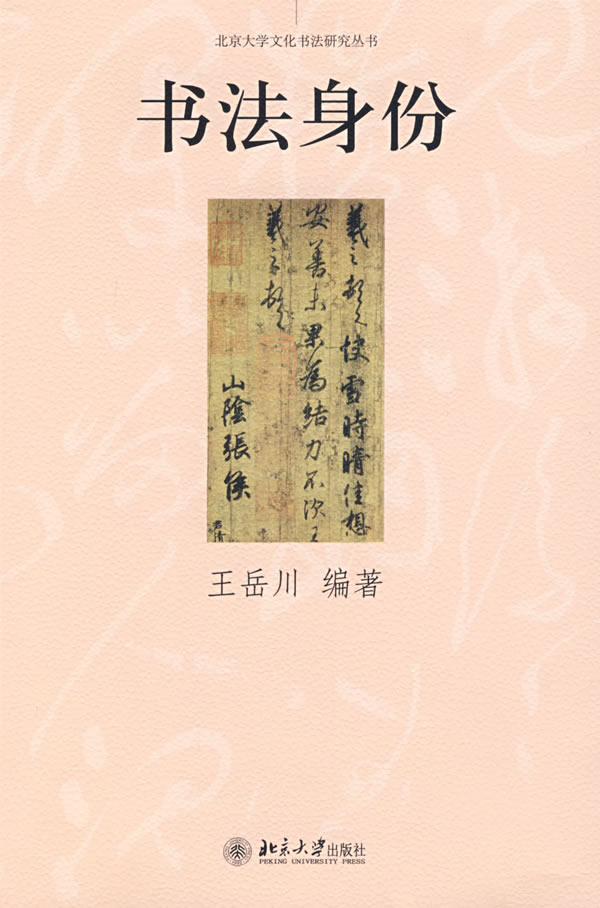 北京大学文化书法研究丛书
书法身份
羲之顿首快雪時晴佳想
安善未果為結力不次王
羲之顿首
山陰張侯
君倩
王岳川 编著
北京大学出版社
PEKING UNIVERSITY PRESS